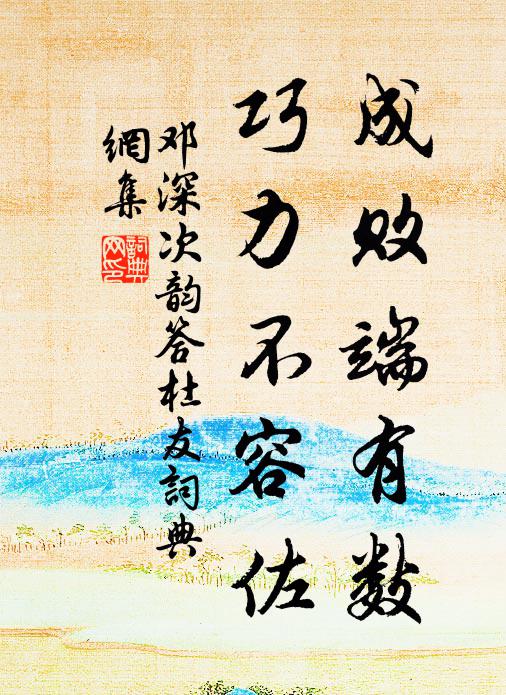 成败端有数
巧力不容佐
邓深次韵答杜友詞典
網集
詞典
网印